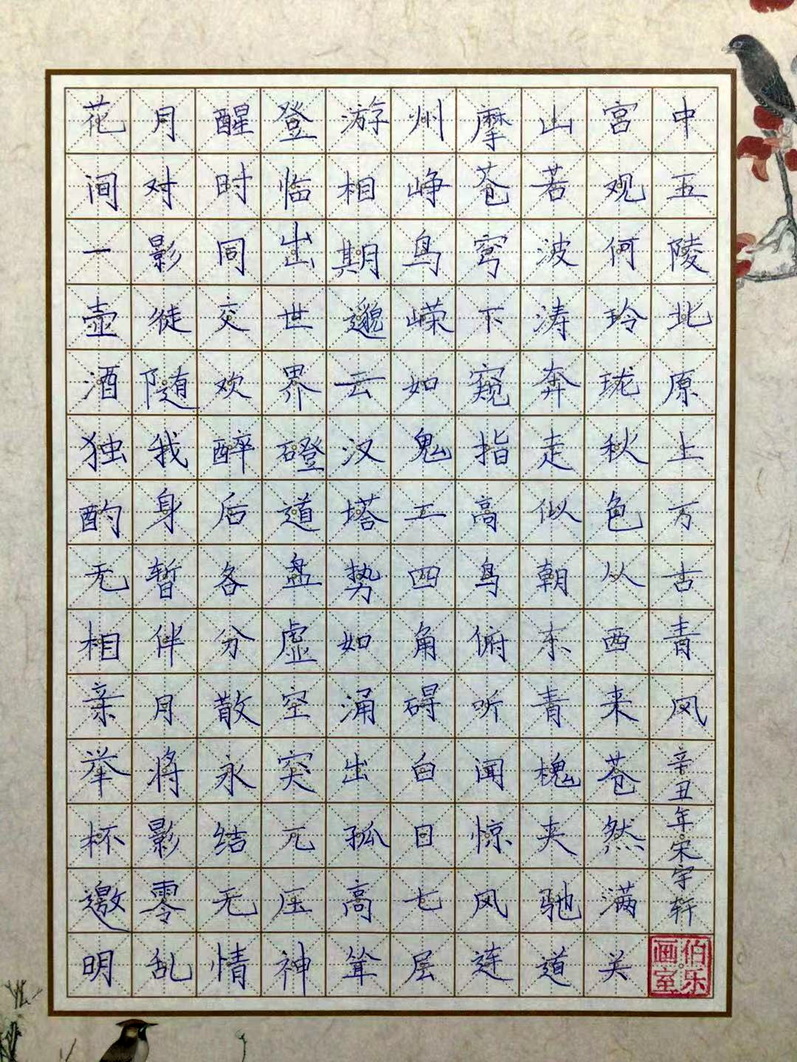 花间一壶酒独酌无相亲举杯邀明
月对影徒随我身暂伴月将影零乱
醒时同交欢醉后各分散永结无情
登临出世界磴道盘虚空突兀压神
游相期邈云汉塔势如涌出孤高耸
州峥鸟嵘如鬼工四角碍白日七层
摩苍穹下窥指高鸟俯听闻惊风连
山若波涛奔走似朝东青槐夹驰道
宫观何玲珑秋色从西来苍然满关
中五陵北原上万古青风
辛丑年宋宇轩
伯乐画室